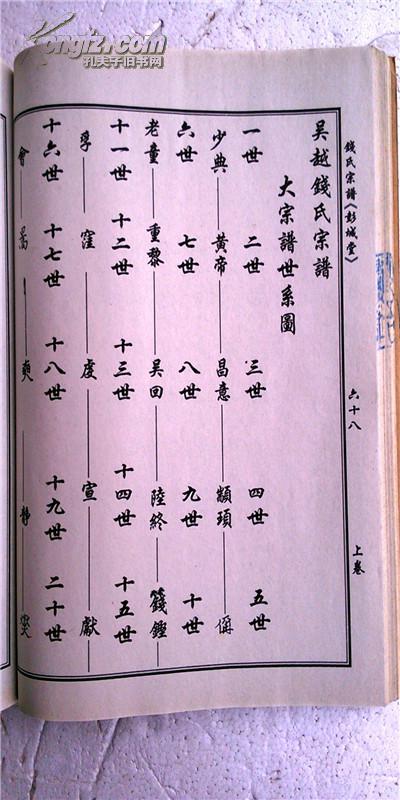 kongfz.com
孔夫子旧书网
錢氏宗譜《彭城堂》
六十八
上卷
吳越錢氏宗譜
大宗譜世系圖
一世 二世 三世 四世 五世
少典 黃帝 昌意 顓頊 偁
六世 七世 八世 九世 十世
老童 重黎 吳回 陸終 籛鏗
十一世 十二世 十三世 十四世 十五世
孚 窪 虔 宣 獻
十六世 十七世 十八世 十九世 二十世
會 暠 奭 靜